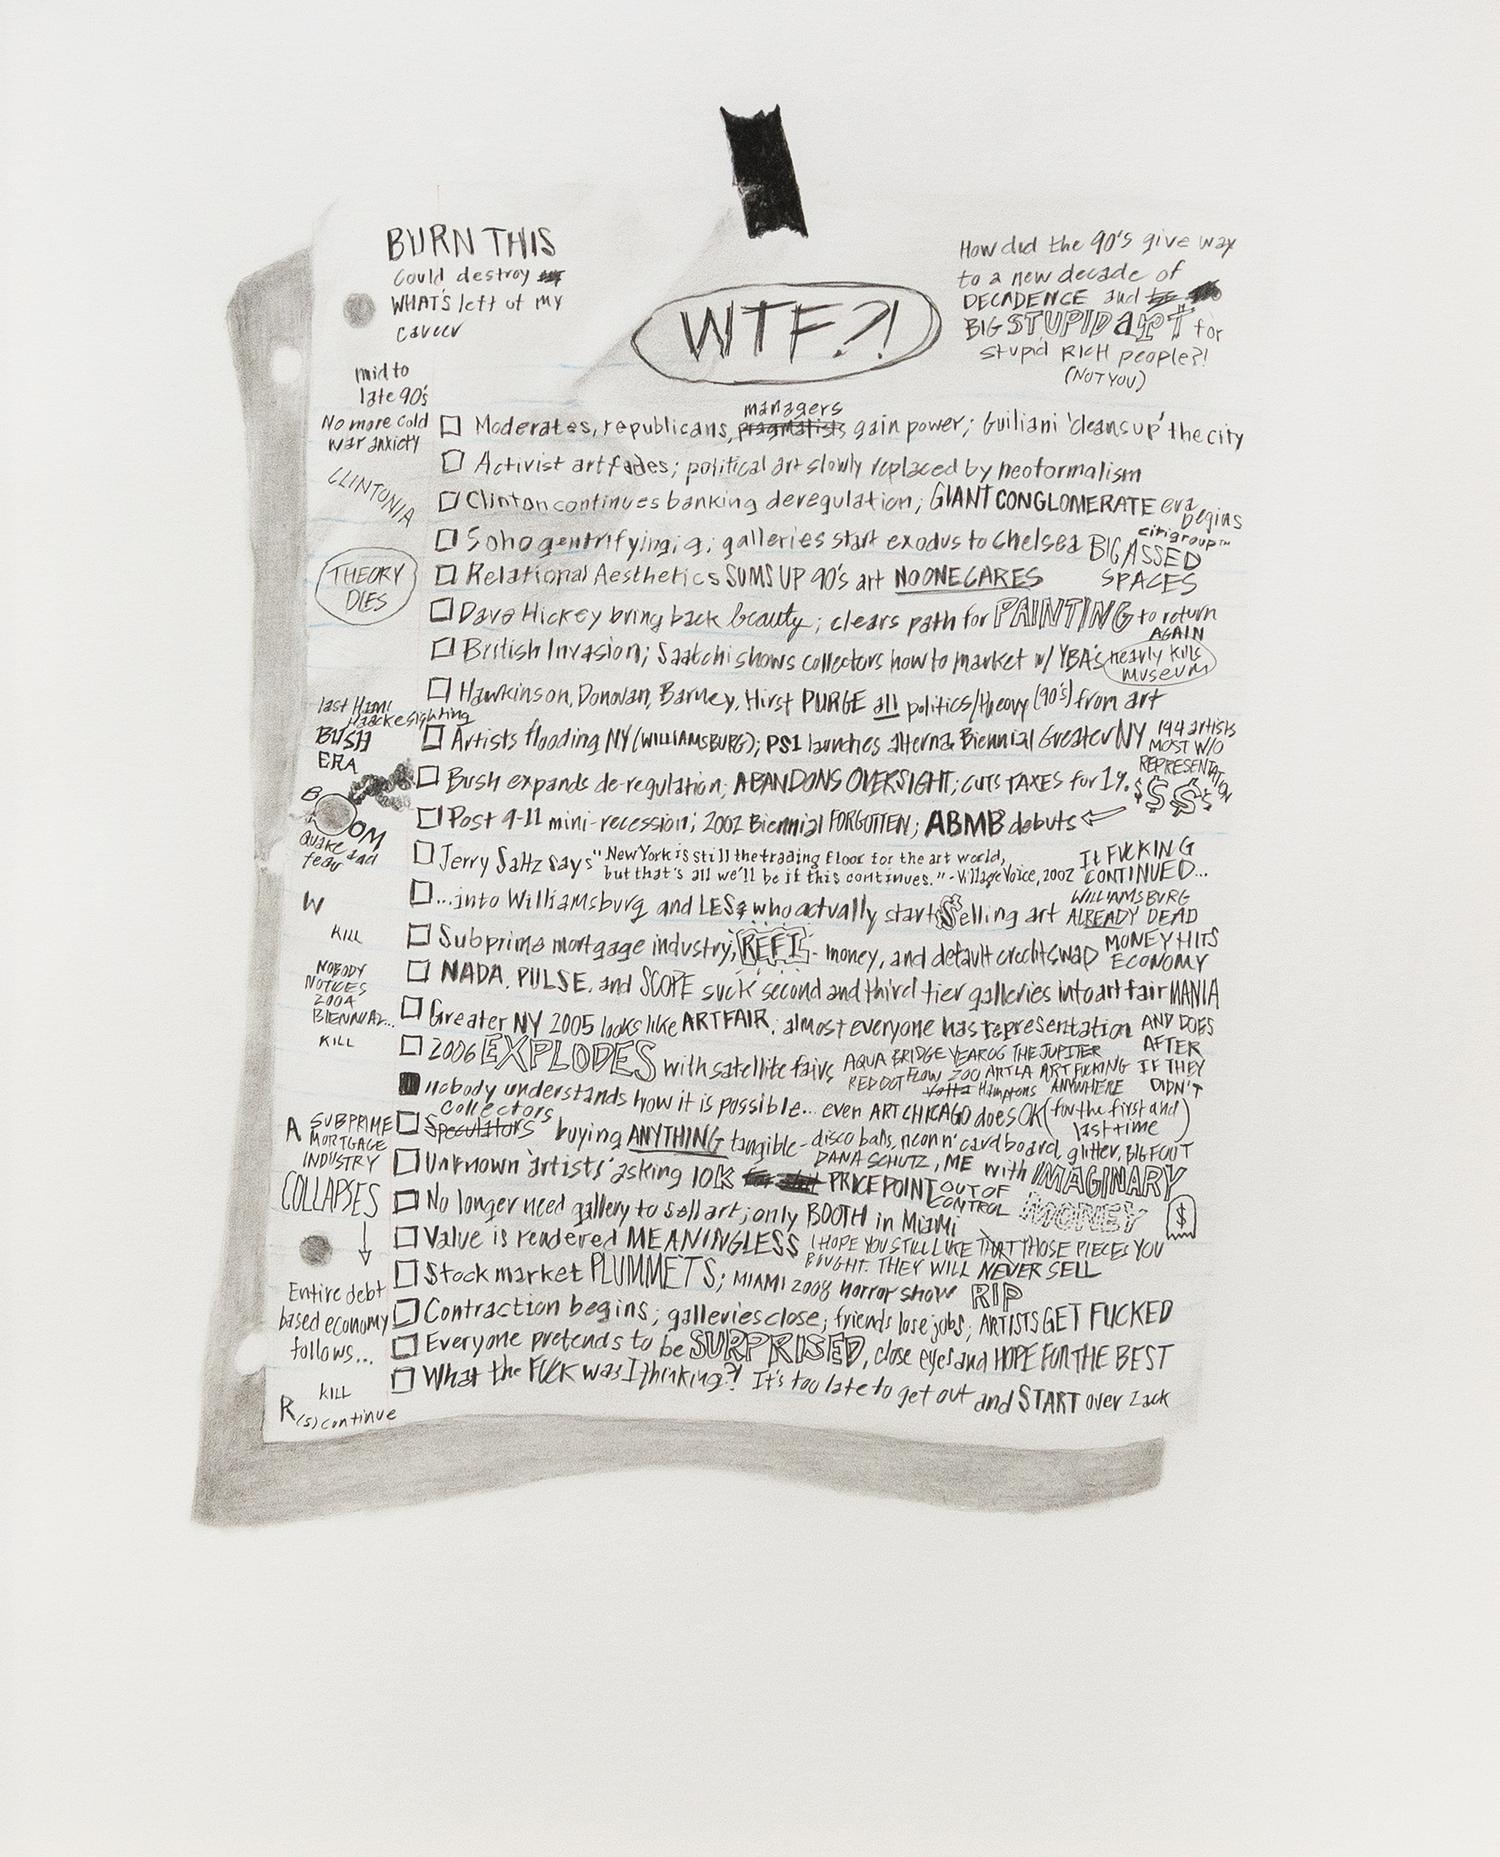 BURN THIS
Could destroy
WHAT'S left of my
career
WTF?!
How did the 90's give way
to a new decade of
DECADENCE and
BIG STUPID aRT for
stupid RICH people?!
(NOT YOU)
mid to
late 90's
No more cold
war anxiety
CLINTONIA
managers
Moderates, republicans, pragmatists gain power; Guiliani 'cleans up' the city
Activist art fades; political art slowly replaced by neoformalism
Clinton continues banking deregulation; GIANT CONGLOMERATE era
begins
citigroup™
Soho gentrifying; galleries start exodus to Chelsea BIG ASSED
SPACES
THEORY
DIES
Relational Aesthetics SUMS UP 90's art NO ONE CARES
Dave Hickey bring back beauty; clears path for PAINTING to return
AGAIN
British Invasion; Saatchi shows collectors how to market w/ YBA's nearly kills
museum
Hawkinson, Donovan, Barney, Hirst PURGE all politics/theory (90's) from art
last Hans
Haacke sighting
BUSH
ERA
Artists flooding NY (WILLIAMSBURG); PS1 launches alterna Biennial Greater NY 194 artists
MOST W/O
REPRESENTATION
Bush expands de-regulation; ABANDONS OVERSIGHT; CUTS TAXES for 1%. $$$$
BOOM
Post 9-11 mini-recession; 2002 Biennial FORGOTTEN; ABMB debuts
quake and
fear
Jerry Saltz says "New York is still the trading floor for the art world,
but that's all we'll be if this continues." - Village Voice, 2002
It FUCKING
CONTINUED...
W
...into Williamsburg and LES & who actually start $elling art
WILLIAMSBURG
ALREADY DEAD
KILL
Subprime mortgage industry, REFI- money, and default credit swap MONEY HITS
ECONOMY
NOBODY
NOTICES
2004
BIENNIAL...
NADA, PULSE, and SCOPE suck second and third tier galleries into art fair MANIA
Greater NY 2005 looks like ART FAIR; almost everyone has representation AND DOES
AFTER
IF THEY
DIDN'T
KILL
2006 EXPLODES with satellite fairs AQUA BRIDGE YEAR06 THE JUPITER
RED DOT FLOW ZOO ART LA ART FUCKING
Volta Hamptons ANYWHERE
nobody understands how it is possible... even ART CHICAGO does OK (for the first and
last time)
A SUBPRIME
MORTGAGE
INDUSTRY
COLLAPSES
collectors
Speculators buying ANYTHING tangible - disco balls, neon n' cardboard, glitter, BIGFOOT
DANA SCHUTZ, ME with IMAGINARY
MONEY
$
Unknown 'artists' asking 10K PRICE POINT OUT OF
CONTROL
No longer need gallery to sell art; only BOOTH in Miami
Value is rendered MEANINGLESS I HOPE YOU STILL LIKE THAT THOSE PIECES YOU
BOUGHT. THEY WILL NEVER SELL
Stock market PLUMMETS; MIAMI 2008 horror show RIP
Entire debt
based economy
follows...
Contraction begins; galleries close; friends lose jobs; ARTISTS GET FUCKED
Everyone pretends to be SURPRISED, close eyes and HOPE FOR THE BEST
What the FUCK was I thinking?! It's too late to get out and START over Zack
KILL
R(s) continue